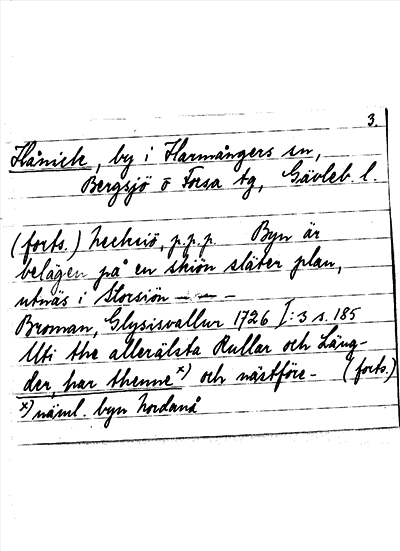 3.
Hånick, by i Harmångers sn,
Bergsjö o Forsa tg, Gävleb. l.
(forts.) Necksiö, p.p.p. Byn är
belägen på en skiön släter plan,
utnäs i Storsiön — — —
Broman, Glysisvallur 1726 I:3 s. 185
Uti the allerälsta Rullar och Läng-
der, har thenne x) och nästföre- (forts.)
x) näml. byn Nordanå